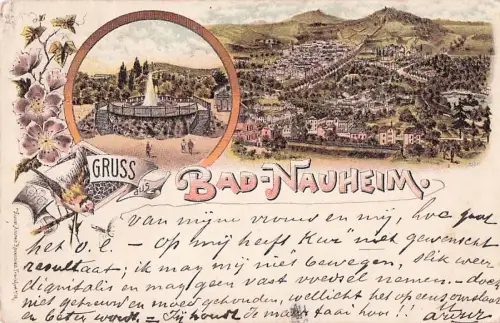 GRUSS
aus
BAD-NAUHEIM.
van mijne vrouw en mij, hoe gaat
het o. l. – Op mij heeft "Kur" niet gewenscht
resultaat; ik mag mij niet bewegen, slik weer
digitalis en mag geen vast voedsel nemen. – doch
niet getreurd en moed gehouden, wellicht het op eens omslaan
en beter wordt. – Jij houdt de maar taai hoor!!